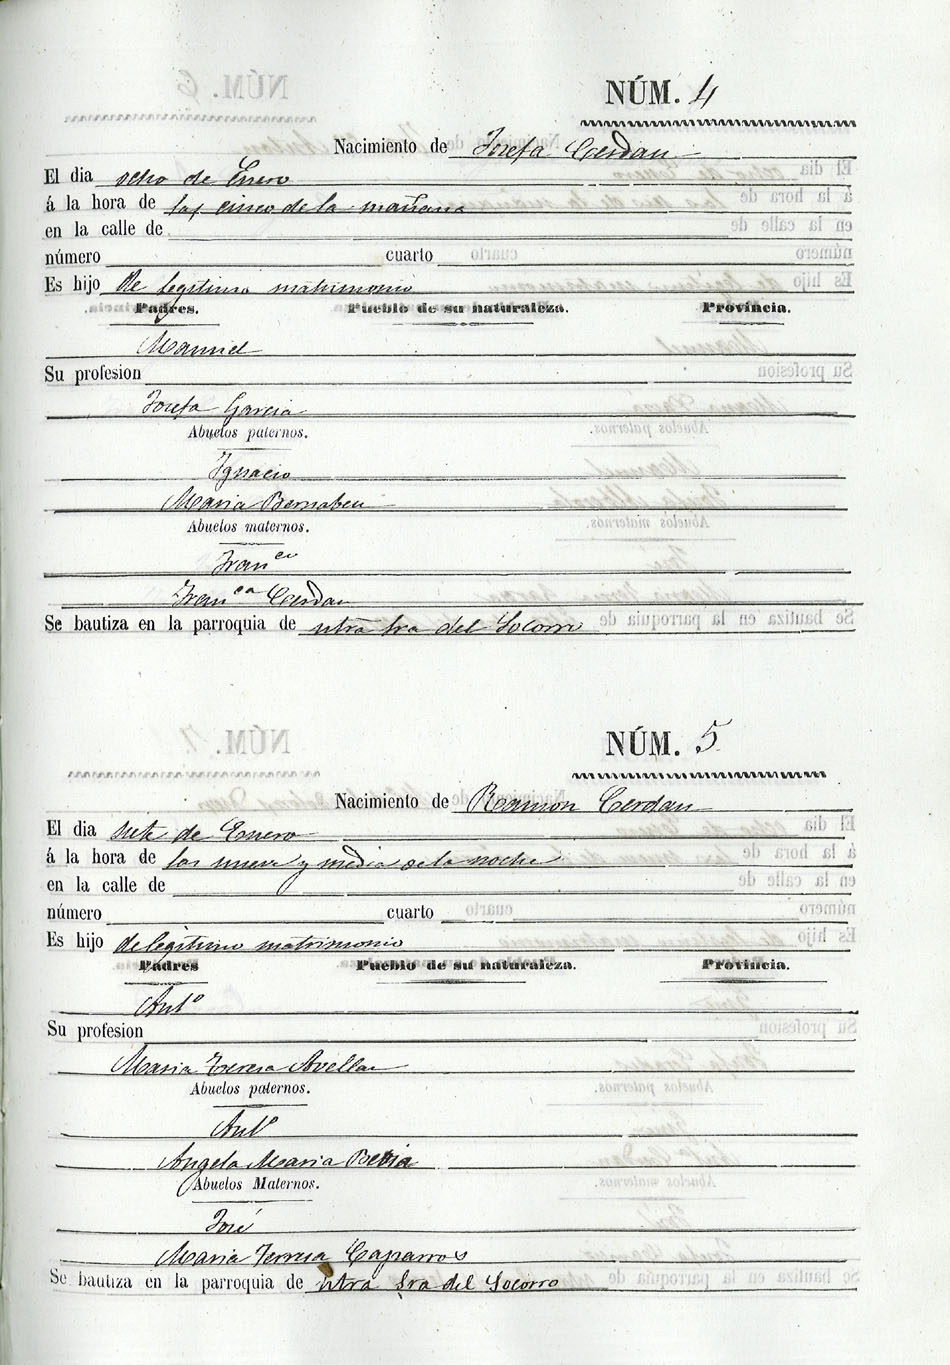 NÚM. 4
Nacimiento de Josefa Cerdan
El dia ocho de Enero
á la hora de las cinco de la mañana
en la calle de
número cuarto
Es hijo de legitimo matrimonio
Padres. Pueblo de su naturaleza. Provincia.
Manuel
Su profesion
Josefa Garcia
Abuelos paternos.
Ygnacio
Maria Bernabeu
Abuelos maternos.
Franco
Franca Cerdan
Se bautiza en la parroquia de ntra Sra del Socorro
NÚM. 5
Nacimiento de Ramon Cerdan
El dia siete de Enero
á la hora de las nueve y media de la noche
en la calle de
número cuarto
Es hijo de legitimo matrimonio
Padres Pueblo de su naturaleza. Provincia.
Anto
Su profesion
Maria Teresa Avellan
Abuelos paternos.
Anto
Angela Maria Bevia
Abuelos Maternos.
José
Maria Teresa Caparros
Se bautiza en la parroquia de ntra Sra del Socorro